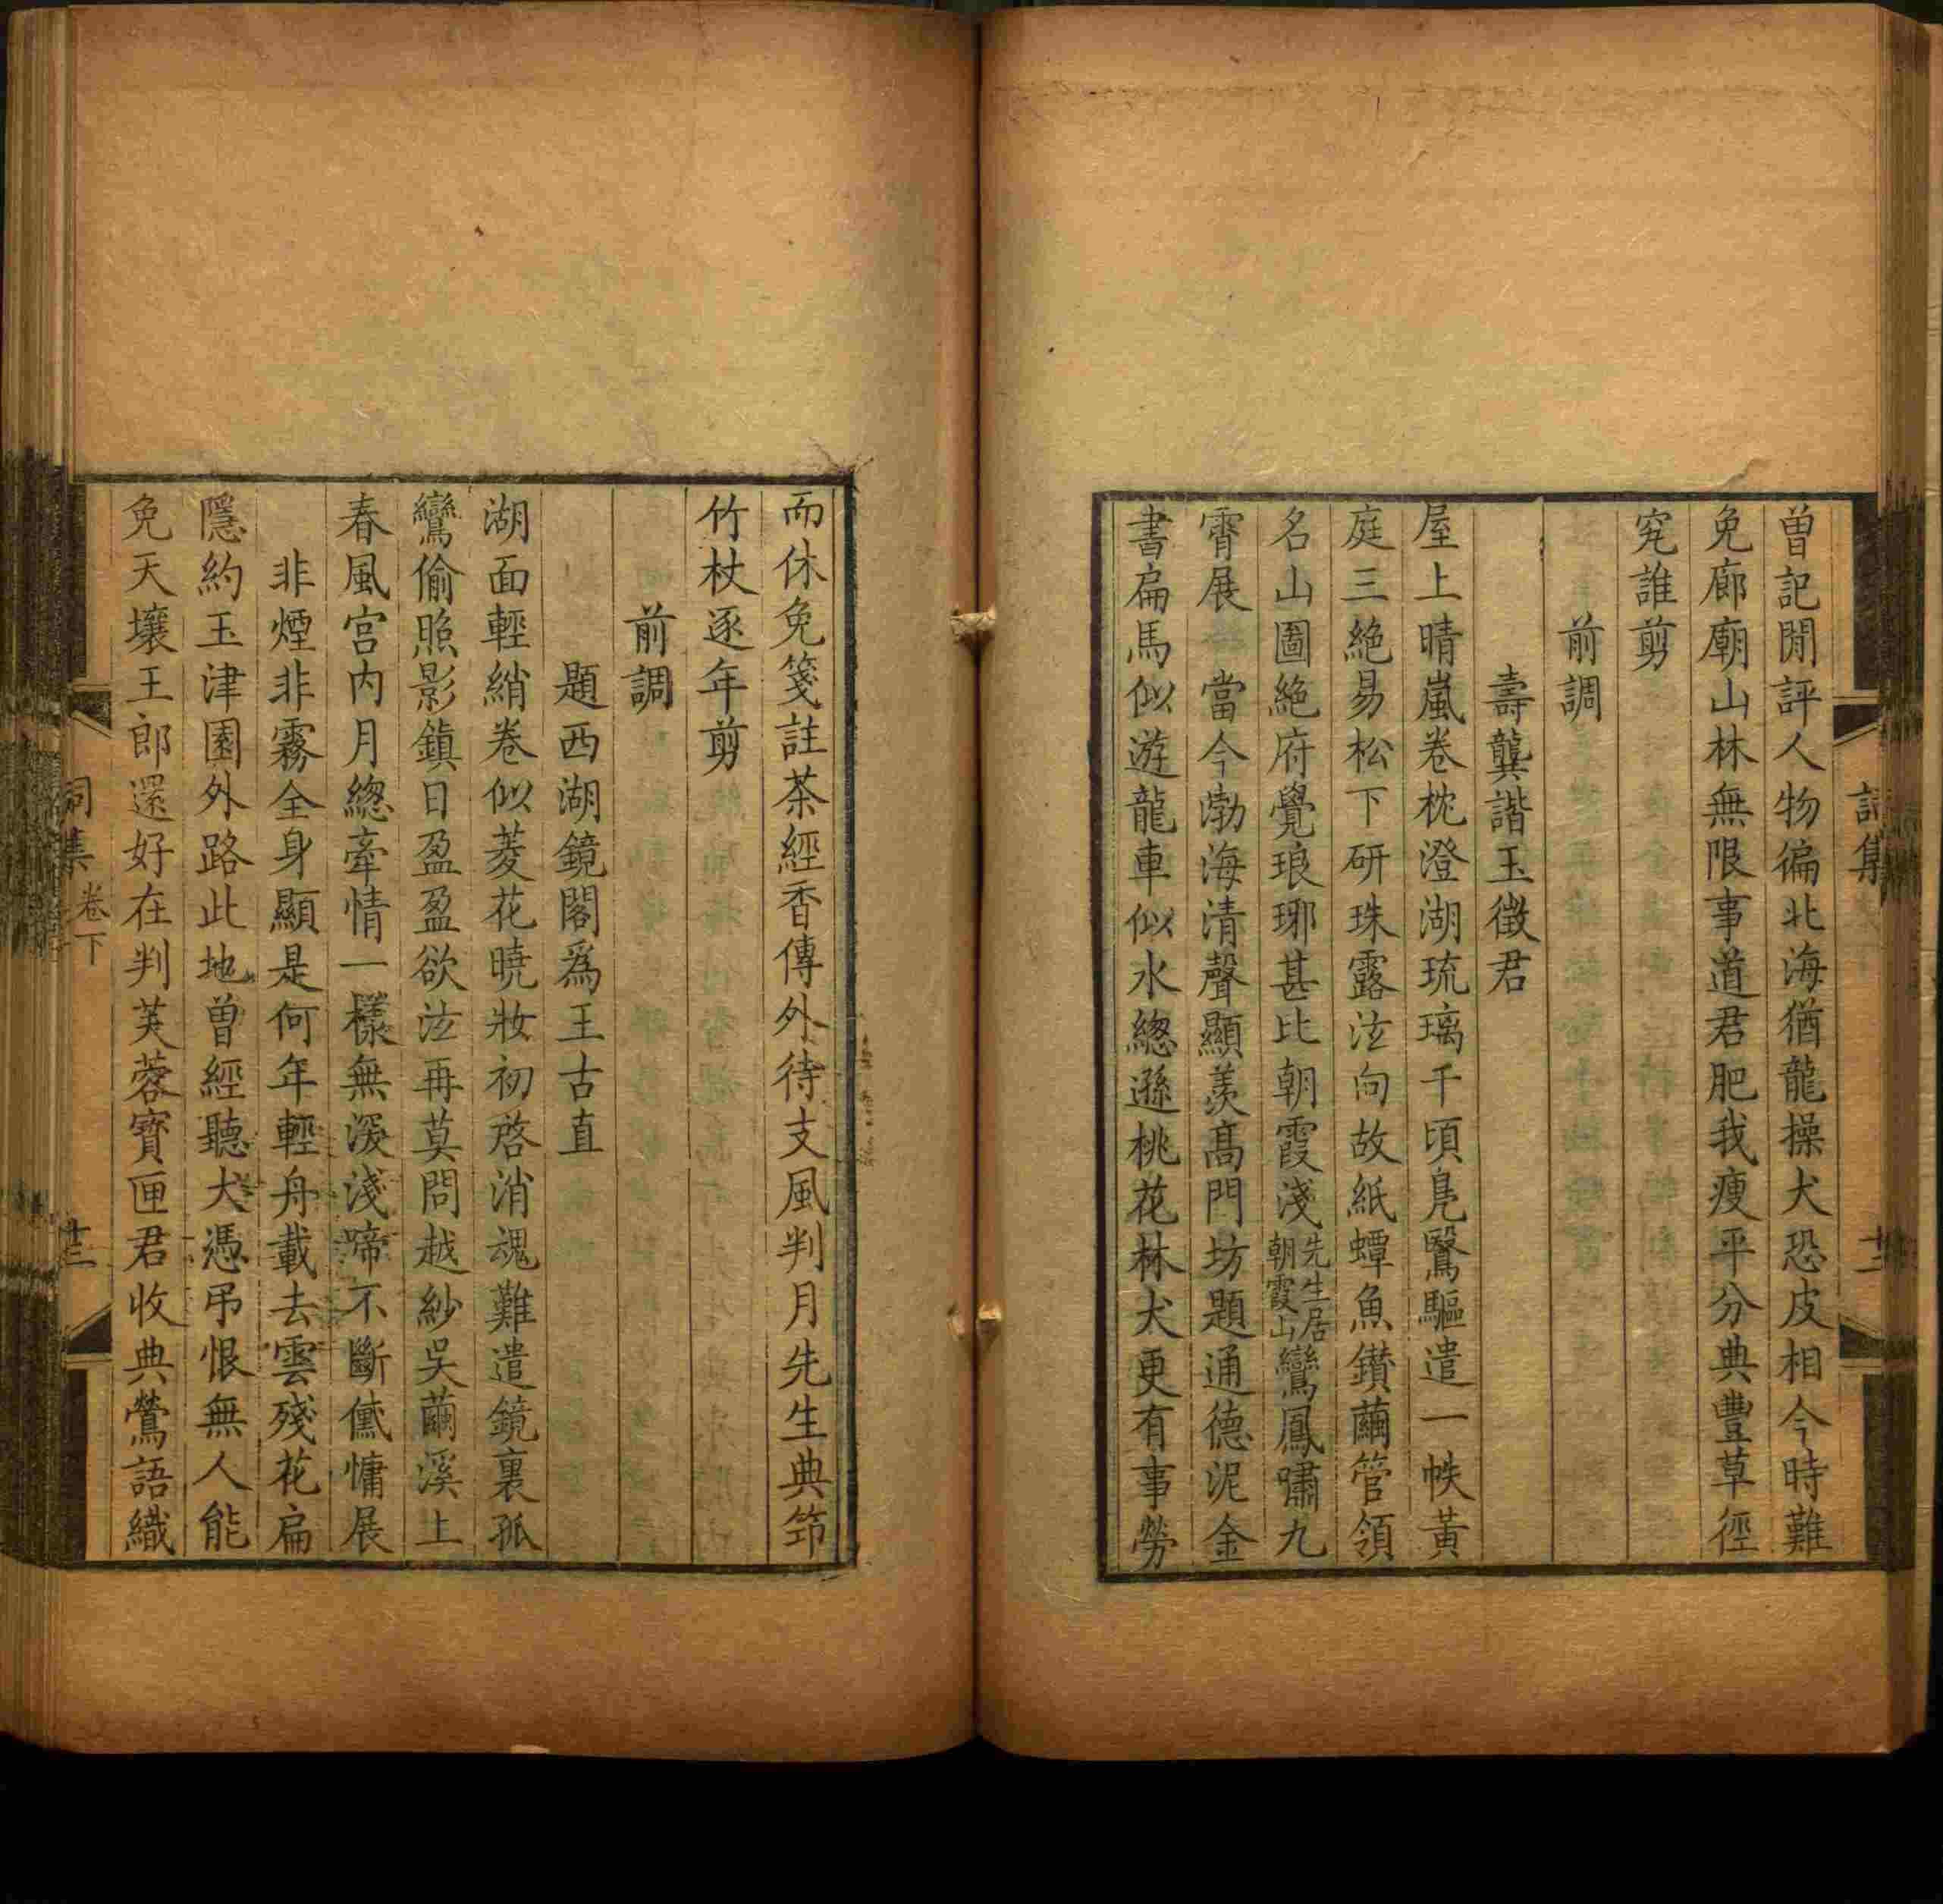 曾記閒評人物徧北海猶龍操犬恐皮相今時難
免廊廟山林無限事道君肥我瘦平分典豐草徑
究誰剪
前調
壽龔諧玉徵君
屋上晴嵐卷枕澄湖琉璃千頃鳧鷖驅遣一帙黃
庭三絶易松下研珠露泣向故紙蟫魚鑚繭管領
名山圖絶府覺琅琊甚比朝霞淺先生居朝霞山鸞鳳嘯九
霄展 當今渤海清聲顯羨髙門坊題通德泥金
書扁馬似遊龍車似水緫遜桃花林犬更有事勞
詞集
十二
而休免箋註茶經香傳外待支風判月先生典笻
竹杖逐年剪
前調
題西湖鏡閣爲王古直
湖面輕綃卷似菱花曉妝初啓消魂難遣鏡裏孤
鸞偷照影鎭日盈盈欲泣再莫問越紗吳繭溪上
春風宫内月緫牽情一樣無深淺啼不斷儘慵展
非煙非霧全身顯是何年輕舟載去雲殘花扁
隱約玉津園外路此地曾經聽犬憑弔恨無人能
免天壤王郎還好在判芙蓉寶匣君收典鶯語織
詞集 卷下
十三